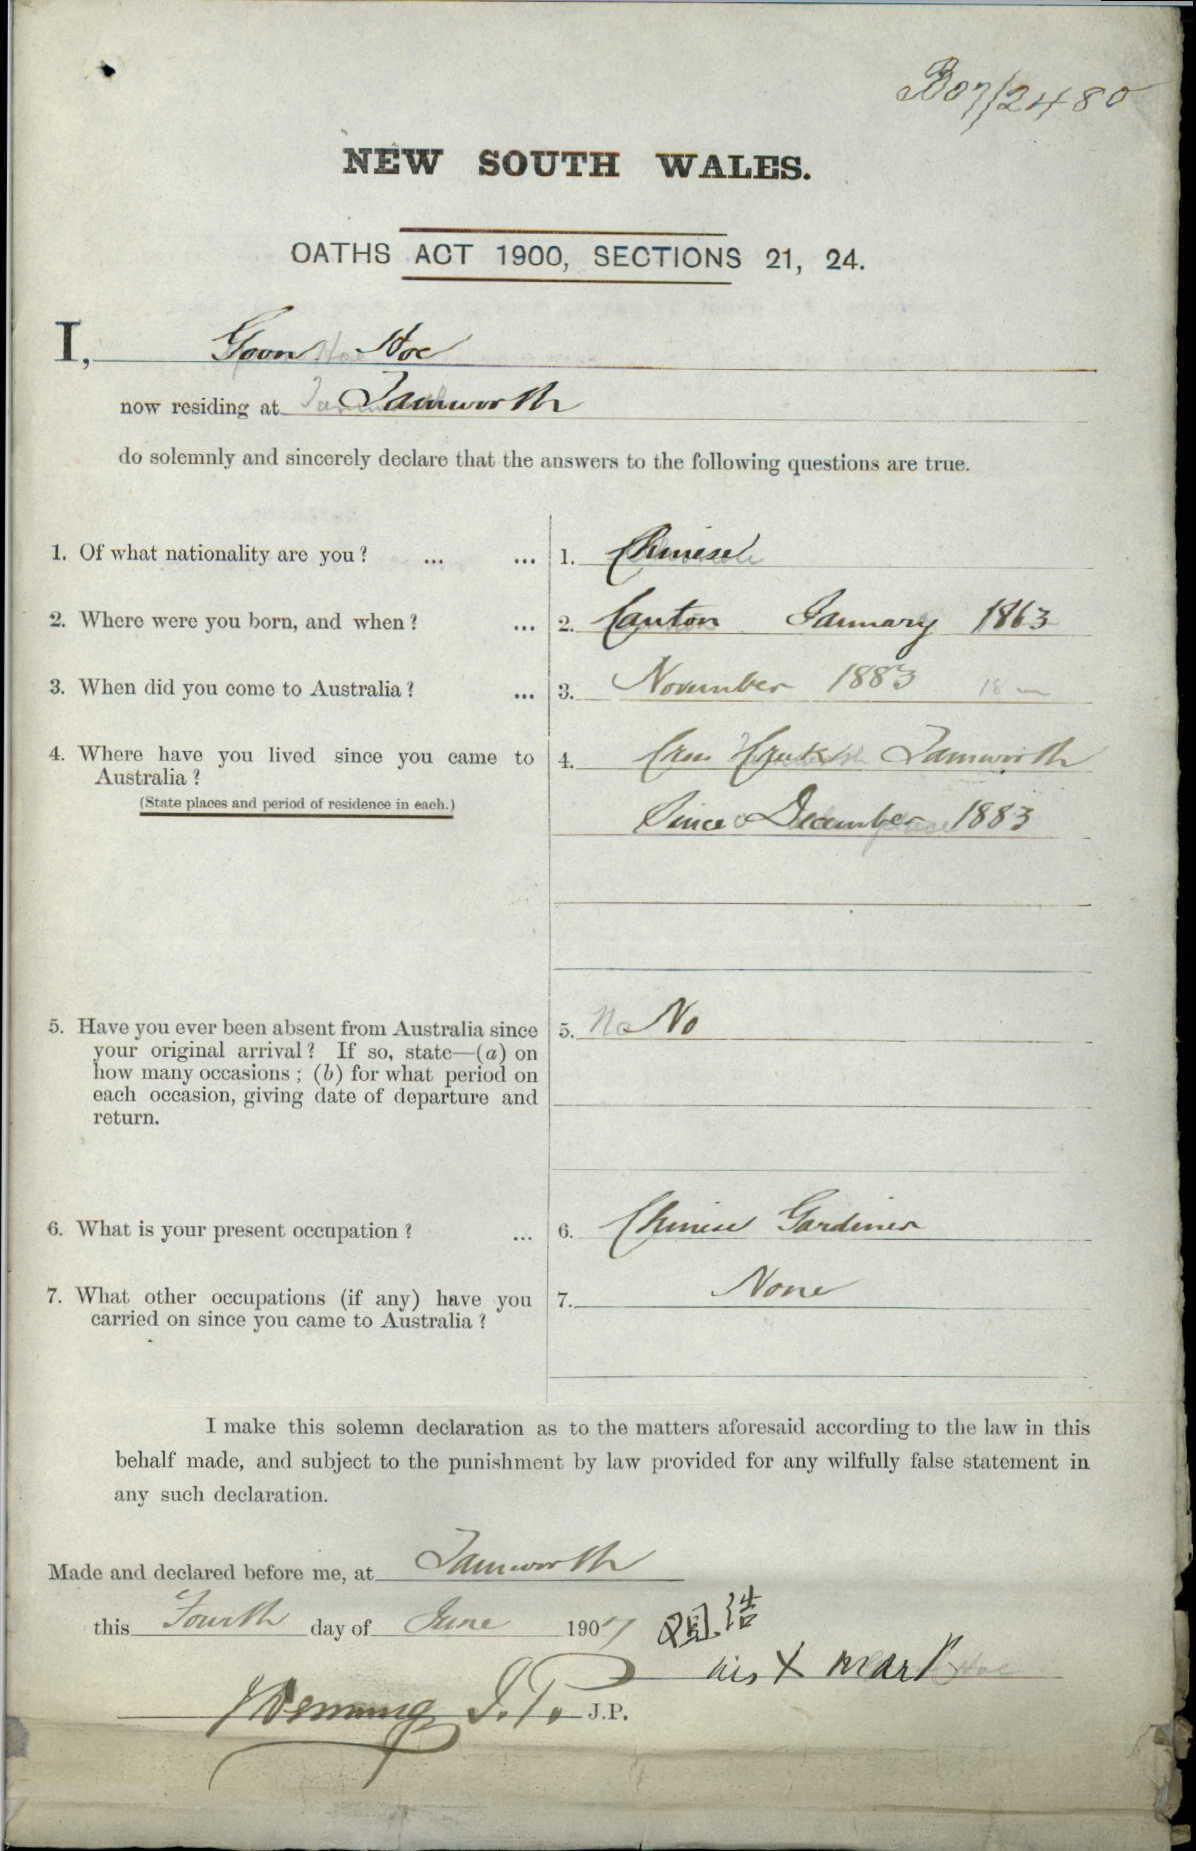 B07/2480
NEW SOUTH WALES.
OATHS ACT 1900, SECTIONS 21, 24.
I, Goon Hoe
now residing at Tamworth
do solemnly and sincerely declare that the answers to the following questions are true.
1. Of what nationality are you? ... ... 1. Chinese
2. Where were you born, and when? ... 2. Canton January 1863
3. When did you come to Australia? ... 3. November 1883 18
4. Where have you lived since you came to 4. Tamworth
Australia?
(State places and period of residence in each.)
Since December 1883
5. Have you ever been absent from Australia since 5. No No
your original arrival? If so, state—(a) on
how many occasions; (b) for what period on
each occasion, giving date of departure and
return.
6. What is your present occupation? ... 6. Chinese Gardiner
7. What other occupations (if any) have you 7. None
carried on since you came to Australia?
I make this solemn declaration as to the matters aforesaid according to the law in this
behalf made, and subject to the punishment by law provided for any wilfully false statement in
any such declaration.
Made and declared before me, at Tamworth
this Fourth day of June 1907 浩
his X mark
J.P. J.P.